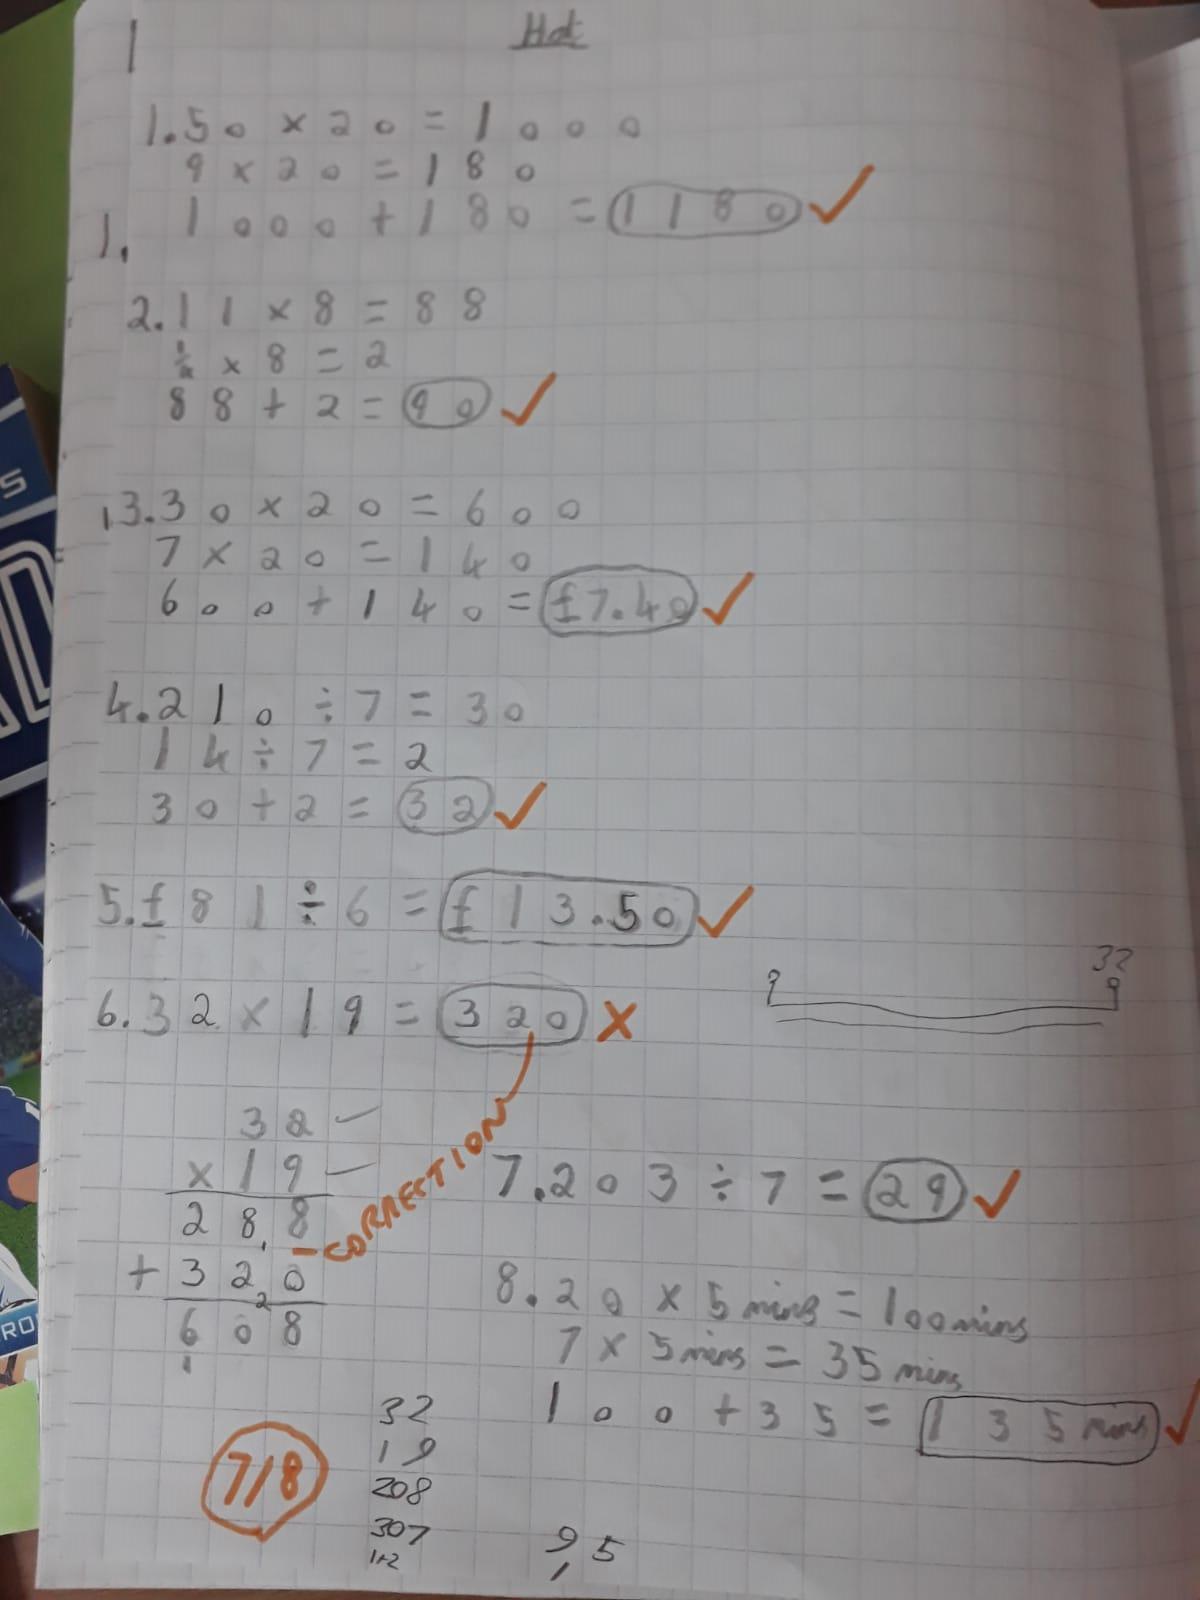 Hot
1
1. 50 × 20 = 1000
9 × 20 = 180
1000 + 180 = 1180 ✓
1.
2. 11 × 8 = 88
× 8 = 2
88 + 2 = 90 ✓
3. 30 × 20 = 600
7 × 20 = 140
600 + 140 = £7.40 ✓
4. 210 ÷ 7 = 30
14 ÷ 7 = 2
30 + 2 = 32 ✓
5. £81 ÷ 6 = £13.50 ✓
6. 32 × 19 = 320 ✗
32
32
× 19
288
+ 320
608
1
CORRECTION
7. 203 ÷ 7 = 29 ✓
8. 20 × 5 mins = 100 mins
7 × 5 mins = 35 mins
100 + 35 = 135 mins ✓
7/8
32
19
208
307
9,5
S
RO